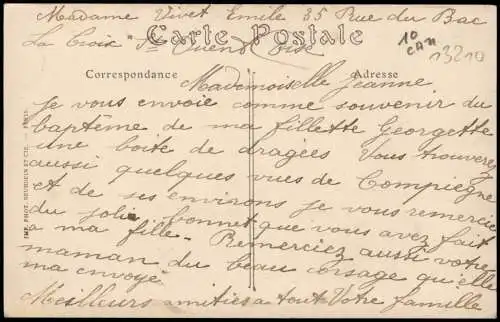 Madame Vivet Emile 35 Rue du Bac
La Croix St Ouen Oise
Carte Postale
10
CAN
13210
Correspondance
Adresse
Mademoiselle Jeanne
je vous envoie comme souvenir du
baptême de ma fillette Georgette
une boite de dragées Vous trouverez
aussi quelques vues de Compiègne
et de ses environs je vous remercie
du joli bonnet que vous avez fait
a ma fille. Remerciez aussi votre
maman du beau corsage qu'elle
ma envoyé
Meilleurs amitiés a tout Votre famille
IMP. PHOT. NEURDEIN ET CIE. - PARIS